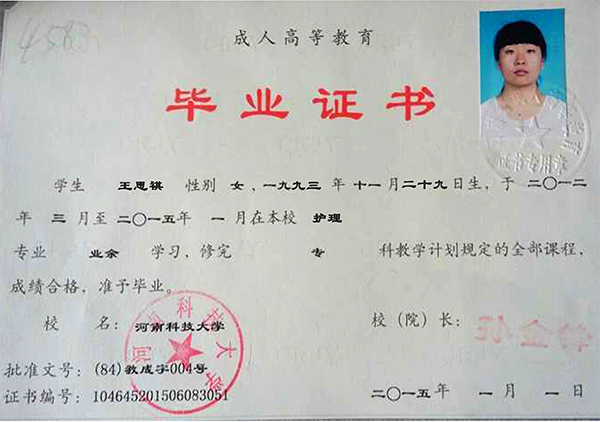 4583
成人高等教育
毕业证书
学生 王思祺 性别 女，一九九三 年 十一 月 二十九 日生，于 二〇一二
年 三 月至 二〇一五 年 一 月在本校 护理
专业 业余 学习，修完 专 科教学计划规定的全部课程，
成绩合格，准予毕业。
校 名：河南科技大学 校（院）长：
批准文号：(84)教成字004号
证书编号：104645201506083051 二〇一五 年 一 月 一 日
河南科技大学
证书专用章